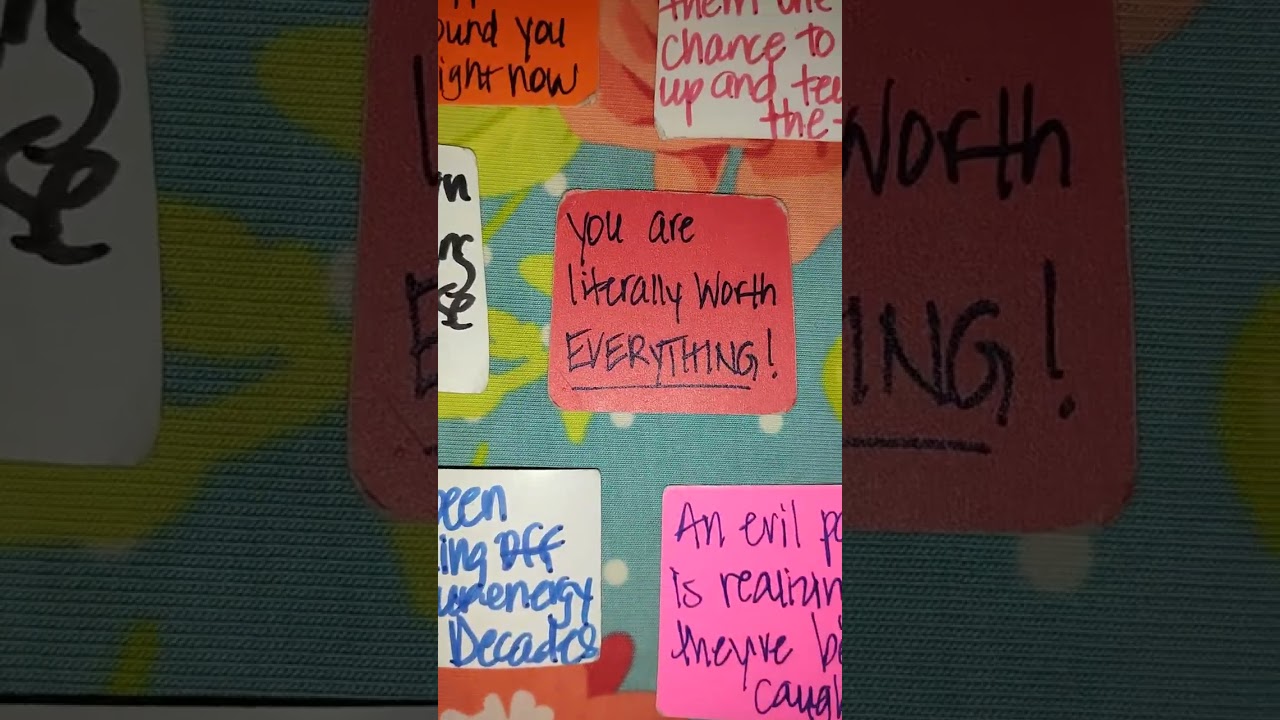 ound you
ight now
them one
chance to
up and te
the
you are
literally worth
EVERYTHING!
een
ing Off
energy
Decades
An evil
is
they've
caugh
worth
ING!